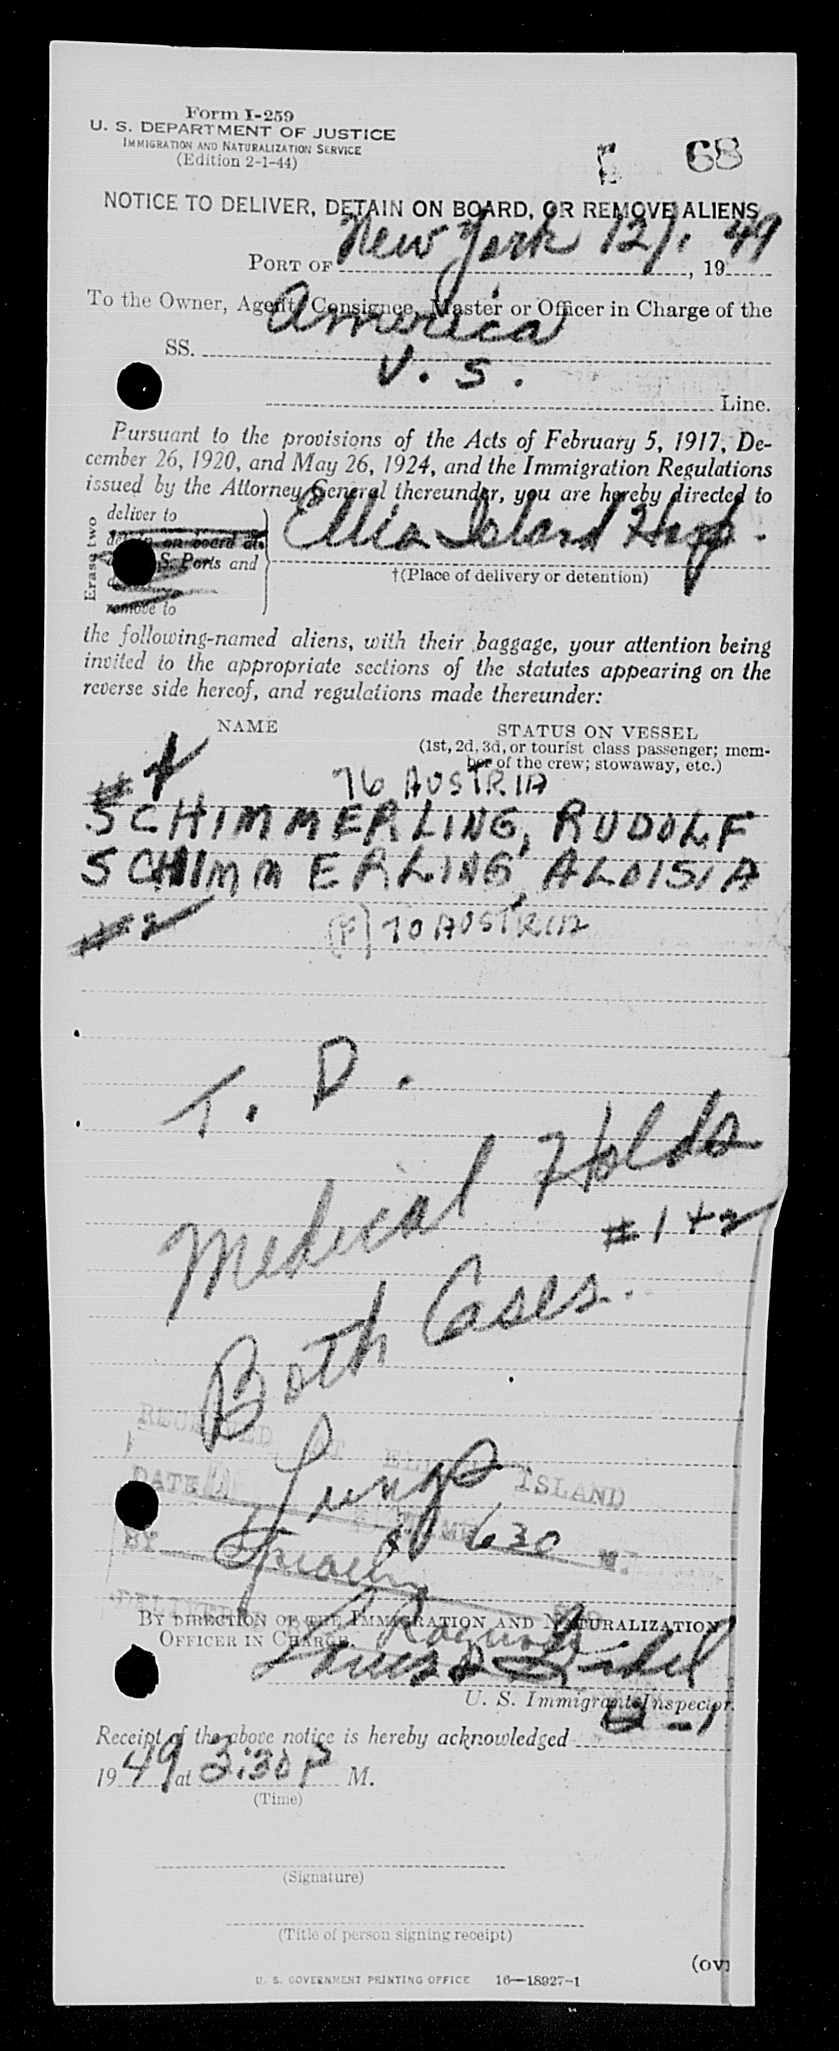 Form I-259
U. S. DEPARTMENT OF JUSTICE
IMMIGRATION AND NATURALIZATION SERVICE
(Edition 2-1-44)
68
NOTICE TO DELIVER, DETAIN ON BOARD, OR REMOVE ALIENS
PORT OF New York 12/1, 1949
To the Owner, Agent, Consignee, Master or Officer in Charge of the
SS. America
U. S. Line.
Pursuant to the provisions of the Acts of February 5, 1917, De-
cember 26, 1920, and May 26, 1924, and the Immigration Regulations
issued by the Attorney General thereunder, you are hereby directed to
Erase two
deliver to
detain on board at
U. S. Ports and
remove to
Ellis Island Hosp.
†(Place of delivery or detention)
the following-named aliens, with their baggage, your attention being
invited to the appropriate sections of the statutes appearing on the
reverse side hereof, and regulations made thereunder:
NAME STATUS ON VESSEL
(1st, 2d, 3d, or tourist class passenger; mem-
ber of the crew; stowaway, etc.)
#1 76 AUSTRIA
SCHIMMERLING, RUDOLF
SCHIMMERLING, ALOISIA
#2 (F) 70 AUSTRIA
T. D.
Medical Holds
#1 + 2
Both Cases.
Lungs
RECEIVED AT ELLIS ISLAND
DATE TIME 630 M.
BY
BY DIRECTION OF THE IMMIGRATION AND NATURALIZATION
OFFICER IN CHARGE.
U. S. Immigrant Inspector.
Receipt of the above notice is hereby acknowledged 12-1
1949 at 3:30 P M.
(Time)
(Signature)
(Title of person signing receipt)
U. S. GOVERNMENT PRINTING OFFICE 16—18927-1